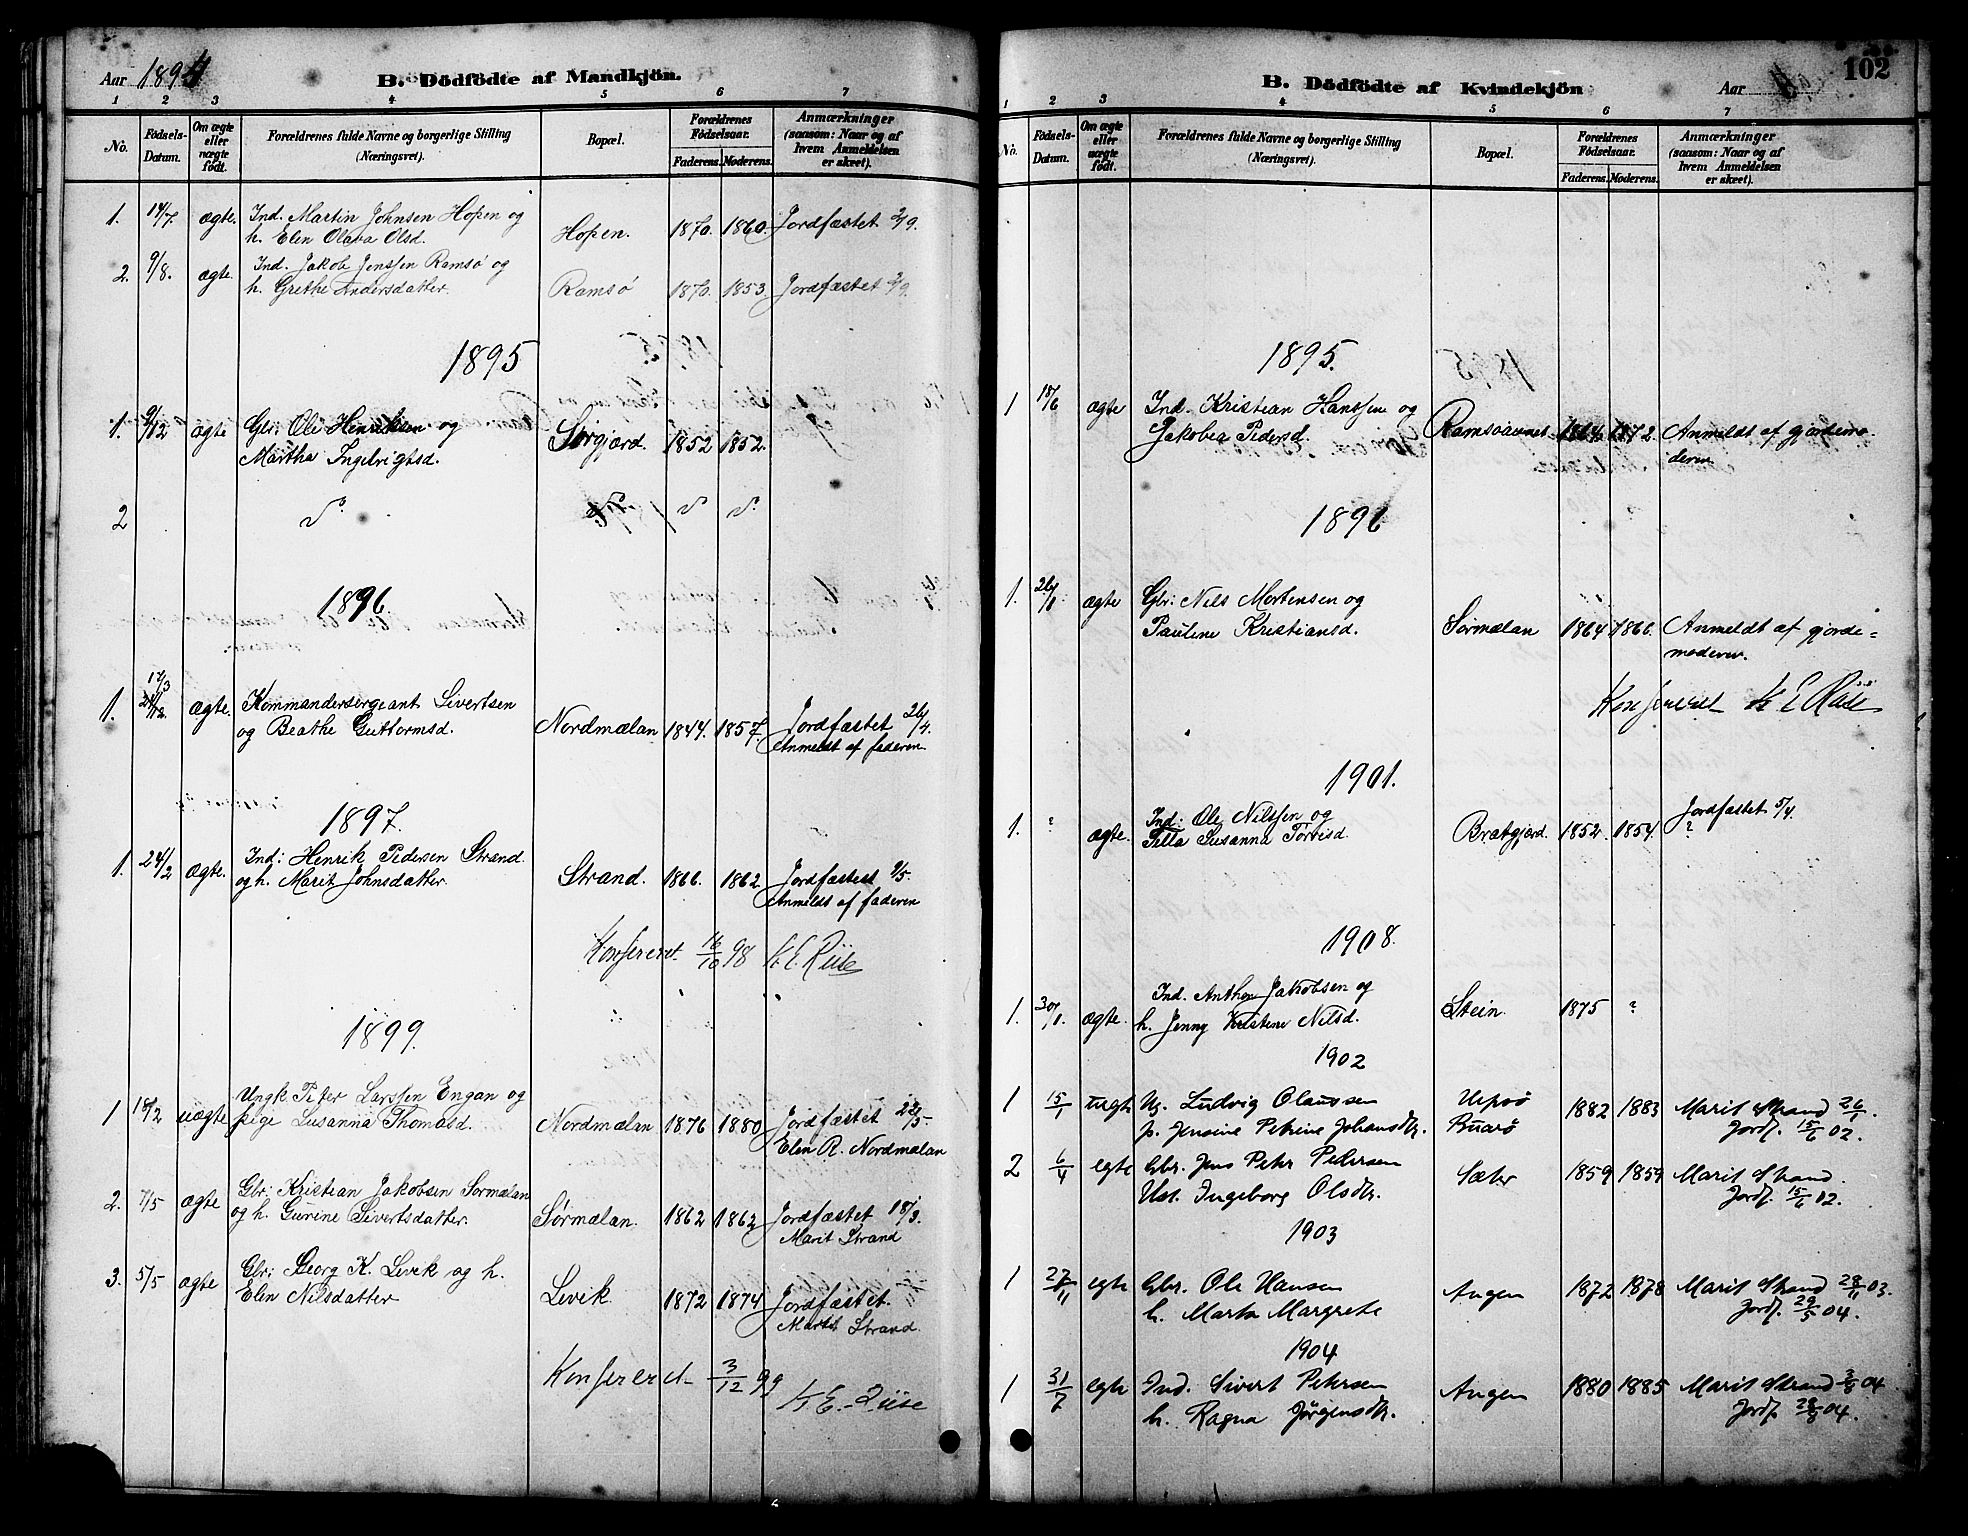 Aar 1894
B. Dödfödte af Mandkjön.
1 2 3 4 5 6 7
No. Födsels-Datum. Om ægte eller uægte födt. Forældrenes fulde Navne og borgerlige Stilling (Næringsvei). Bopæl. Forældrenes Födselsaar. Faderens. Moderens. Anmærkninger (saasom: Naar og af hvem Anmeldelsen er skeet).
1. 14/7 ægte. Ind. Martin Johnsen Hopen og
h. Elen Olava Olsd. Hopen. 1870. 1860. Jordfæstet 2/9.
2. 9/8. ægte. Ind. Jakob Jenssen Ramsø og
h. Grethe Andersdatter. Ramsø 1870. 1853. Jordfæstet 2/9.
1895
1. 9/12 ægte Gbr. Ole Henriksen og
Martha Ingebrigtsd. Sørgjerd. 1852 1852.
2 do do do do
1896.
17/3
1. 21/12. ægte. Kommandersergeant Sivertsen
og Beathe Guttormsd. Nordmælan 1844. 1857. Jordfæstet 26/4.
Anmeldt af faderen
1897.
1. 24/2 ægte. Ind: Henrik Pedersen Strand
og h. Marit Johnsdatter. Strand. 1866. 1862. Jordfæstet 9/5.
Anmeldt af faderen
Konfereret 16/10 98 K. E. Riise
1899.
1 18/2 uægte Ungk Peter Larssen Engan og
pige Susanna Thomasd. Nordmælan 1876 1880 Jordfæstet 22/5-
Elen R. Nordmælan
2. 7/5 ægte Gbr: Kristian Jakobsen Sørmælan
og h. Gurine Sivertsdatter. Sørmælan. 1862 1862 Jordfæstet 18/3.
Marit Strand
3. 5/5 ægte Gbr: Georg K. Levik og h.
Elen Nilsdatter Levik. 1872 1874 Jordfæstet.
Marit Strand.
Konfereret 3/12 99
K E. Riise
102
B. Dödfödte af Kvindekjön
Aar
1 2 3 4 5 6 7
No. Födsels-Datum. Om ægte eller uægte födt. Forældrenes fulde Navne og borgerlige Stilling (Næringsvei). Bopæl. Forældrenes Födselsaar. Faderens. Moderens. Anmærkninger (saasom: Naar og af hvem Anmeldelsen er skeet).
1895.
1 18/6 ægte Ind. Kristian Hanssen og
Jakobea Pedersd. Ramsøavnet 1864 1872. Anmeldt af gjordemo
deren
1896
1. 26/8 ægte Gbr: Nils Mortensen og
Pauline Kristiansd. Sørmælan 1864 1866. Anmeldt af gjorde=
moderen.
Konfereret K E Riise
1901.
1. ? ægte. Ind: Ole Nilssen og
Susanna Bratgjerd. 1852. 1854. Jordfæstet 5/4.
?
1908.
1. 30/1. ægte. Ind. Anthon Jakobsen og
h. Jenny Kristene Nilsd. Stein. 1875 ?
1902
1 15/1 Ug. Ludvig Olaussen
p. Jensine Petrine Johansdtr. 1882 1883 Marit Strand 26/1.
Jordf. 15/6 02.
2 6/4 egte Gbr. Jens Petter Petersen
Ingeborg Olsdtr. Sæter 1859 1859 Marit Strand.
Jordf. 15/6 02.
1903
1 27/11 egte Gbr. Ole Hansen
h. Marta Margrete Angen 1872 1878 Marit Strand 28/11 03.
Jordf. 29/5 04.
1904
1 31/7 egte Ind. Sivert Petersen
h. Ragna Jörgensdtr. Angen 1880 1885 Marit Strand 3/8 04
Jordf. 28/8 04.